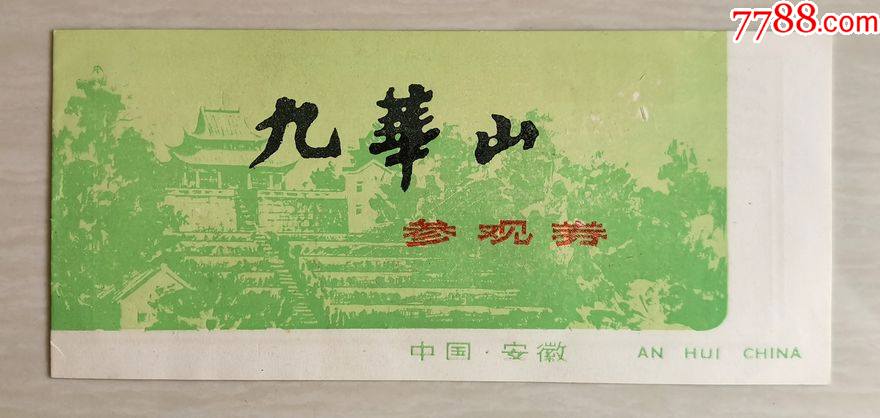 7788.com
九華山
参观券
中国·安徽 AN HUI CHINA